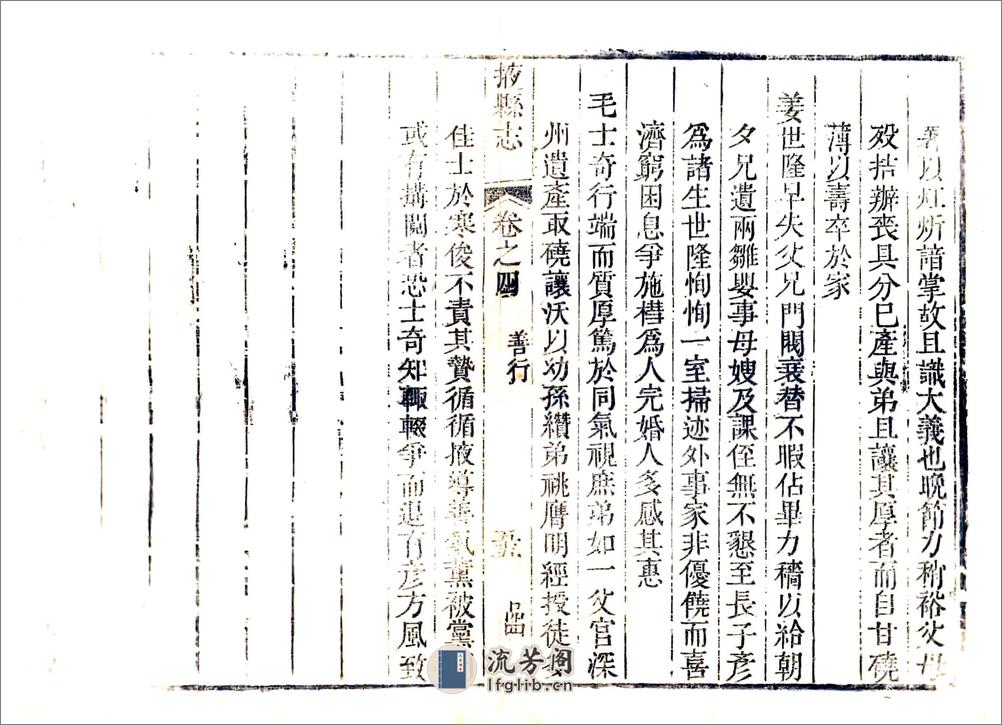 以 諳掌故且識大義也晚節力稍裕父母
歿拮辦喪具分已產與弟且讓其厚者而自甘磽
薄以壽卒於家
姜世隆早失父兄門閥衰替不暇佔畢力穡以給朝
夕兄遺兩雛嬰事母嫂及課侄無不懇至長子彥
爲諸生世隆恂恂一室掃迹外事家非優饒而喜
濟窮困息爭施槥爲人完婚人多感其惠
毛士奇行端而質厚篤於同氣視庶弟如一父官深
州遺產取磽讓沃以幼孫纘弟祧膺明經授徒
掖縣志 卷之四 善行
佳士於寒俊不責其贄循循掖導善氣薰被黨
或有搆鬭者恐士奇知輙輟爭而退有彥方風致
流芳阁
lfglib.cn